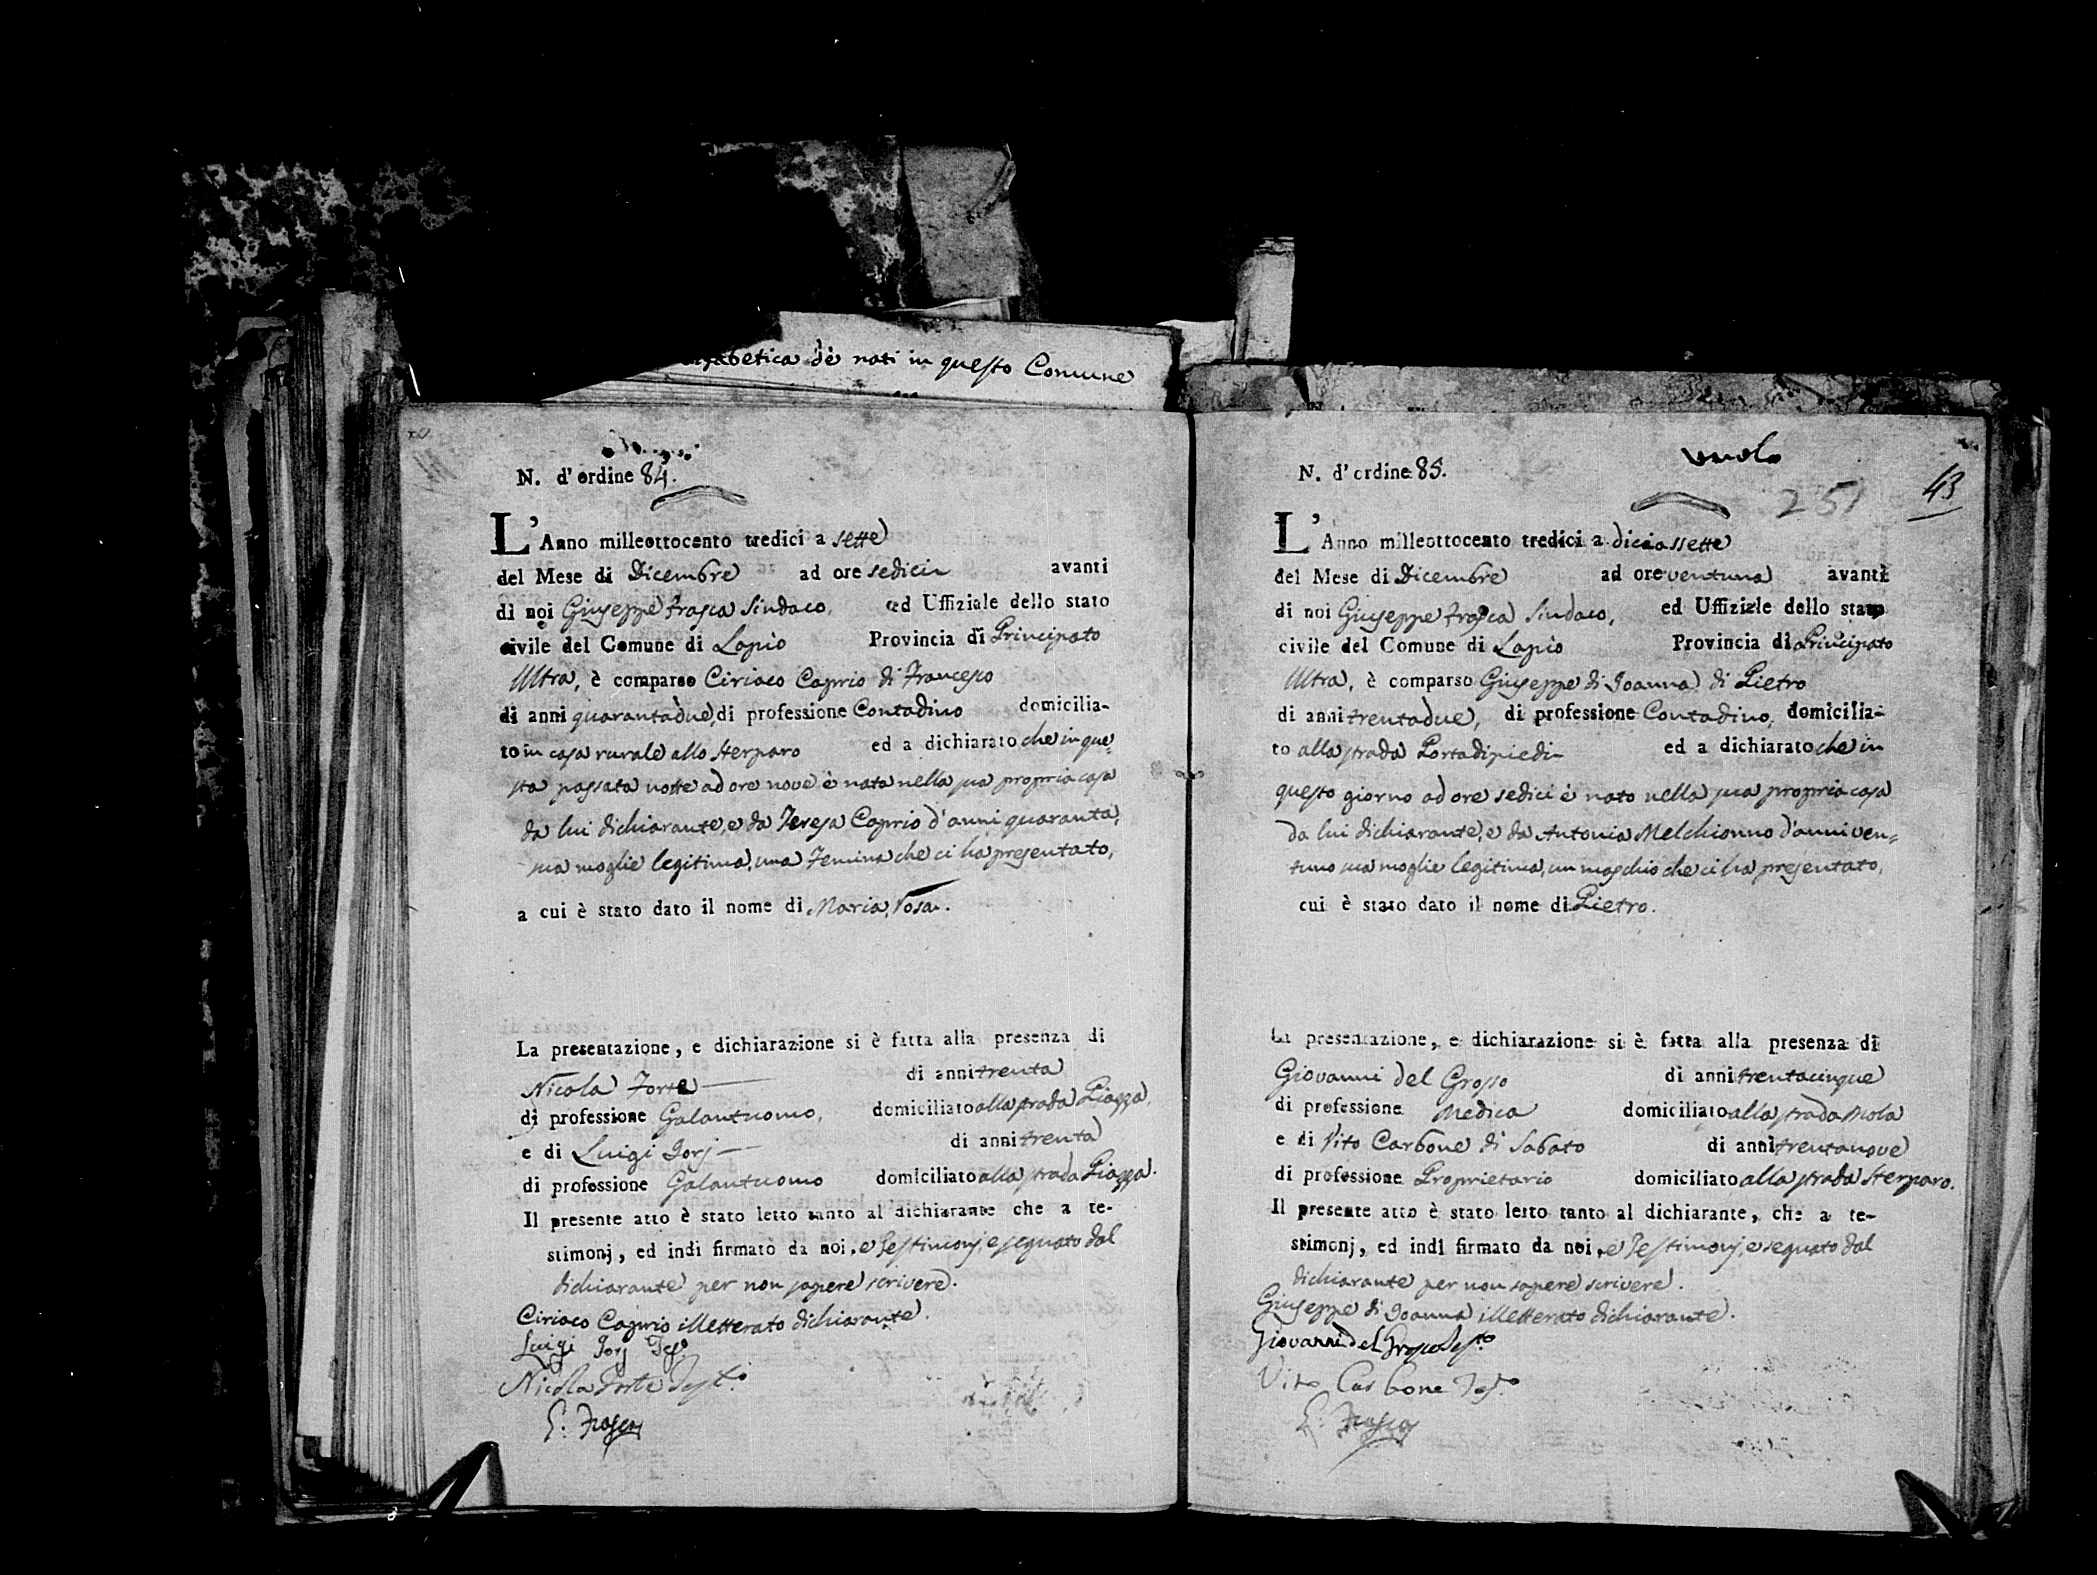 alfabetica de nati in questo Comune
N. d'ordine 84.
L'Anno milleottocento tredici a sette
del Mese di Dicembre ad ore sedici avanti
di noi Giuseppe Frasca Sindaco, ed Uffiziale dello stato
civile del Comune di Lapio Provincia di Principato
Ultra, è comparso Ciriaco Caprio di Francesco
di anni quarantadue, di professione Contadino domicilia-
to in casa rurale allo Sterparo ed a dichiarato che in que=
sta passata notte ad ore nove è nata nella sua propria casa
da lui dichiarante, e da Teresa Caprio d'anni quaranta,
sua moglie legitima, una Femina che ci ha presentato,
a cui è stato dato il nome di Maria, Rosa.
La presentazione, e dichiarazione si è fatta alla presenza di
Nicola Forte di anni trenta
di professione Galantuomo, domiciliato alla strada Piazza,
e di Luigi Jorj di anni trenta
di professione Galantuomo domiciliato alla strada Piazza.
Il presente atto è stato letto tanto al dichiarante che a te-
stimonj, ed indi firmato da noi, e Testimonj, e segnato dal
dichiarante per non sapere scrivere.
Ciriaco Caprio illetterato dichiarante.
Luigi Jorj Tes.o
Nicola Forte Test.o
G. Frasca
43
251
N. d'ordine 85.
L'Anno milleottocento tredici a diciassette
del Mese di Dicembre ad ore ventuna avanti
di noi Giuseppe Frasca Sindaco, ed Uffiziale dello stato
civile del Comune di Lapio Provincia di Principato
Ultra, è comparso Giuseppe di Joanna di Pietro
di anni trentadue, di professione Contadino, domicilia-
to alla strada Portadipiedi ed a dichiarato che in
questo giorno ad ore sedici è nato nella sua propria casa
da lui dichiarante, e da Antonia Melchionno d'anni ven=
tuno sua moglie legitima, un maschio che ci ha presentato,
cui è stato dato il nome di Pietro.
La presentazione, e dichiarazione si è fatta alla presenza di
Giovanni del Grosso di anni trentacinque
di professione Medico domiciliato alla strada Mola
e di Vito Carbone di Sabato di anni trentanove
di professione Proprietario domiciliato alla strada Sterparo.
Il presente atto è stato letto tanto al dichiarante, che a te-
stimonj, ed indi firmato da noi, e Testimonj, e segnato dal
dichiarante per non sapere scrivere.
Giuseppe di Joanna illetterato dichiarante.
Giovanni del Grosso Tes.to
Vito Carbone Tes.to
G. Frasca